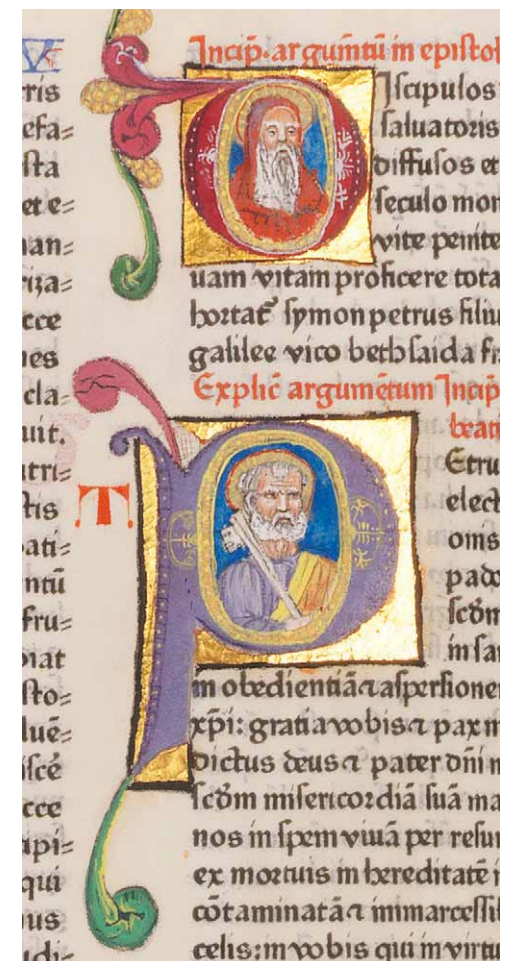 V
ris
efa=
sta
et e=
nan=
riza=
cce
nes
cla=
uit.
tri=
tis
ati=
ntū
fru=
iat
sto=
luē=
iscē
cce
api=
qui
nus
udi=
T
Incip̄. argumētū in epistol
DIscipulos
saluatoris
diffusos et
seculo mon
vite penite
uam vitam proficere tota
hortat᷑ symon petrus filiu
galilee vico bethsaida fr
Explic̄ argumētum Incip̄
beati
PEtru
elect
oms
pado
scd̄m
in sa
in obedientiā ⁊ aspersione
xp̄i: gratia vobis ⁊ pax m
dictus deus ⁊ pater dn̄i n
scd̄m misericordiā suā ma
nos in spem viuā per resur
ex mortuis in hereditatē i
cōtaminatā ⁊ immarcessib
celis: in vobis qui in virtu